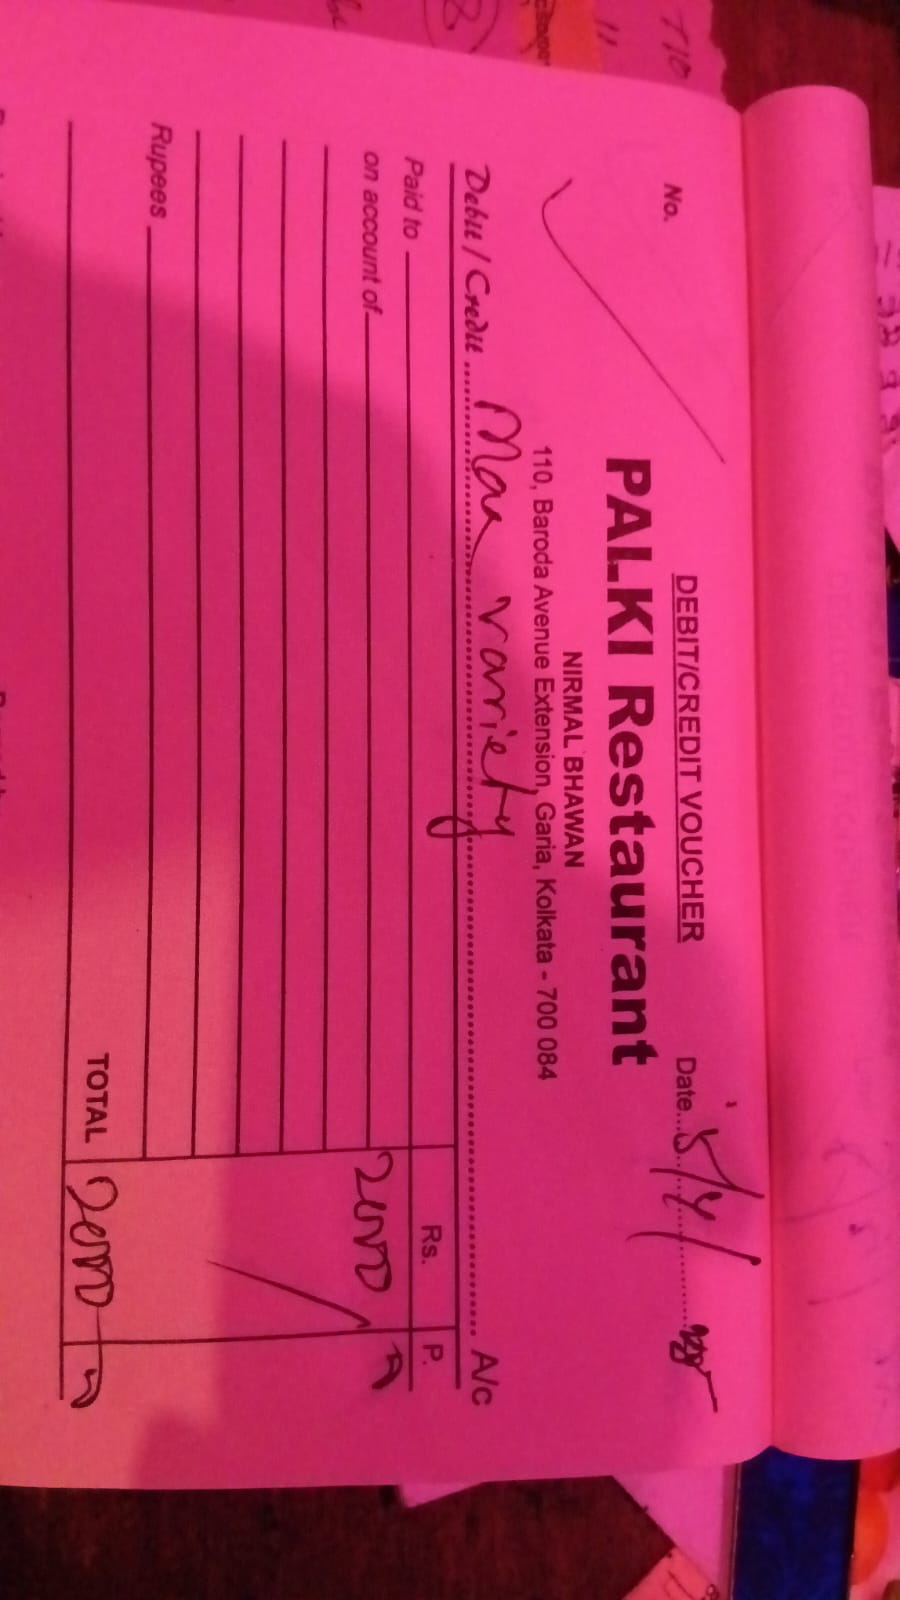 DEBIT/CREDIT VOUCHER
No.
Date
PALKI Restaurant
NIRMAL BHAWAN
110, Baroda Avenue Extension, Garia, Kolkata - 700 084
Debit / Credit Maa variety A/c
Rs. P.
Paid to
on account of
Rupees
TOTAL